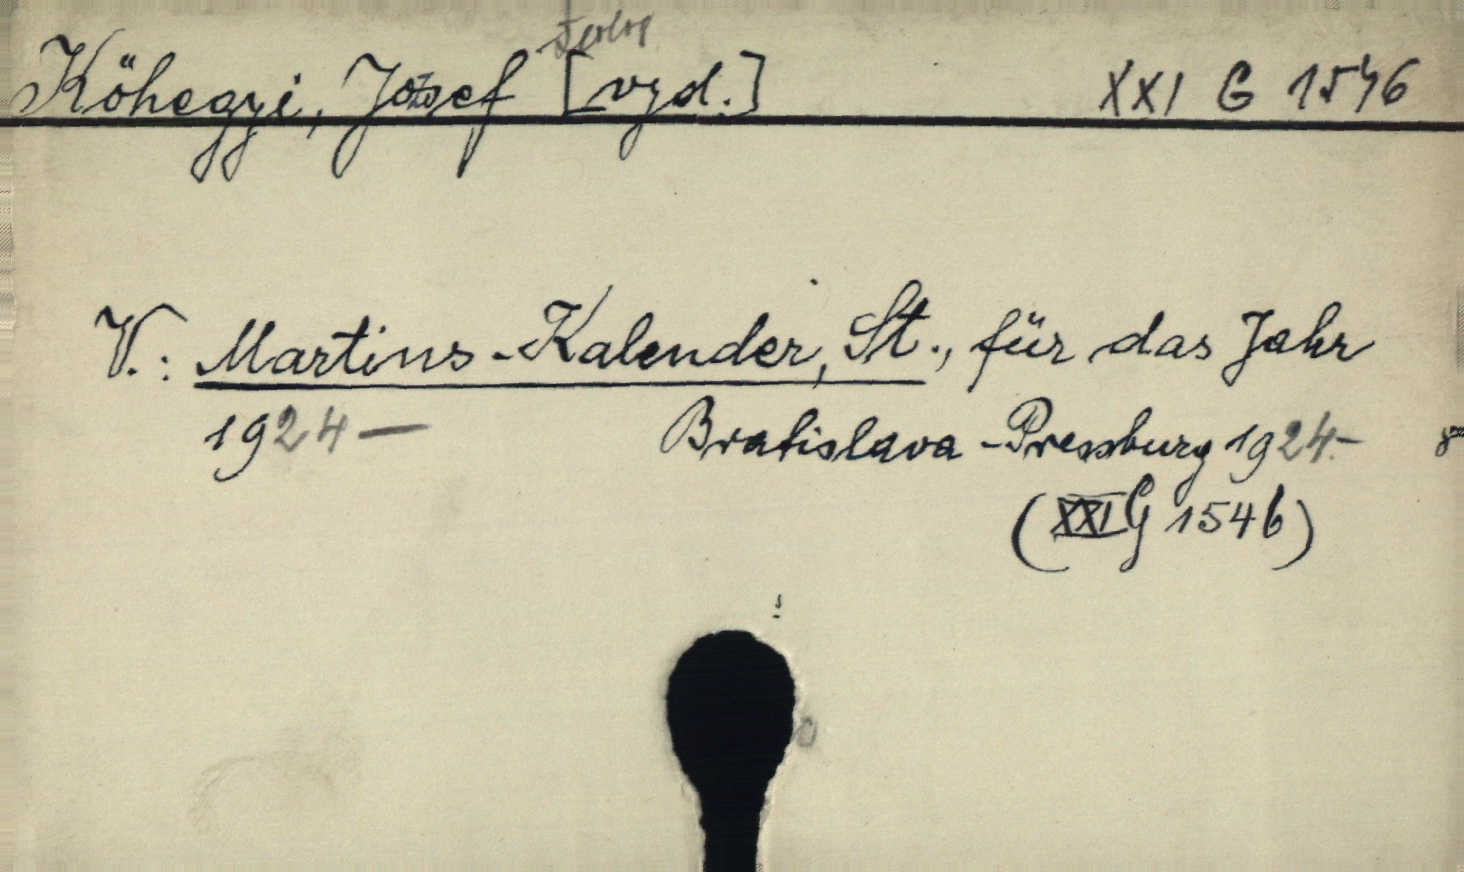 Kőhegyi, József [vyd.] XXI G 1546
V.: Martins-Kalender, St., für das Jahr
1924— Bratislava-Pressburg 1924.- 8°
(XXI G 1546)